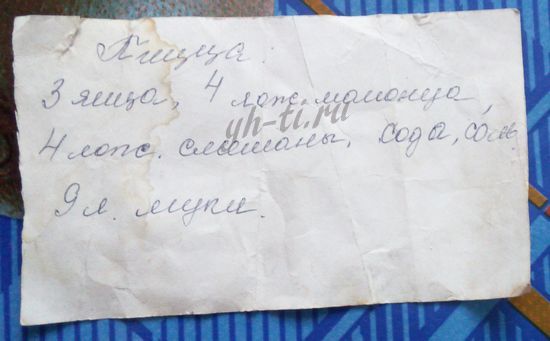 Пицца:
3 яйца, 4 лож. майонеза,
4 лож. сметаны, сода, соль.
9 л. муки.
yh-ti.ru